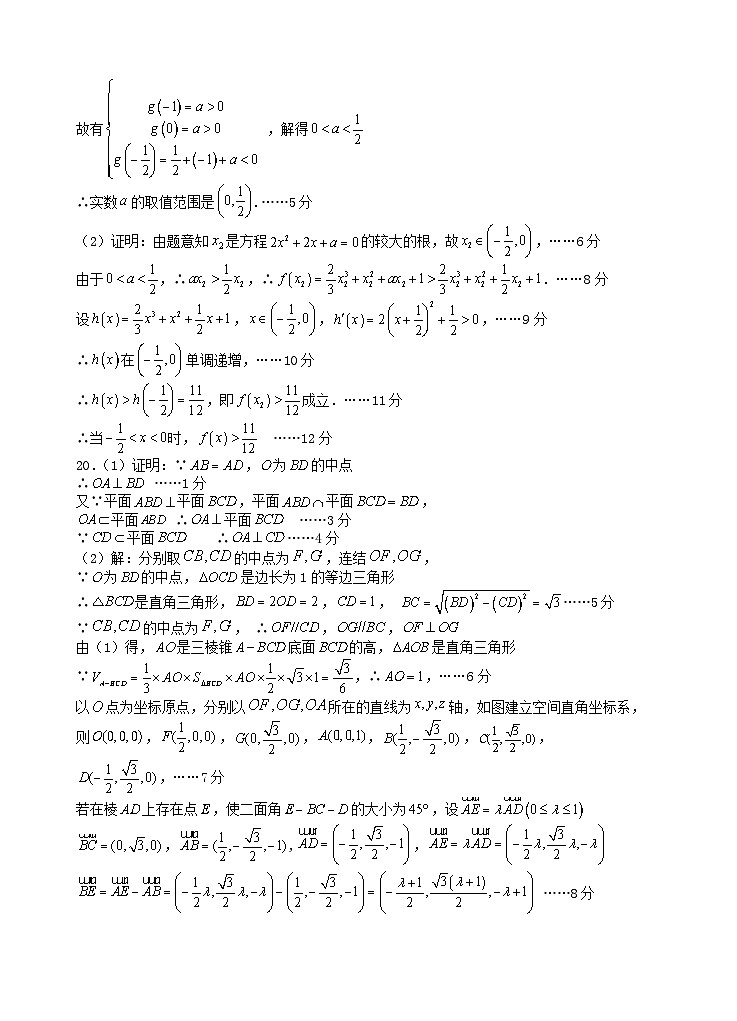 故有{g(-1)=a>0
g(0)=a>0 ,解得0<a<1/2
g(-1/2)=1/2+(-1)+a<0
∴实数a的取值范围是(0,1/2).……5分
(2)证明:由题意知x₂是方程2x²+2x+a=0的较大的根,故x₂∈(-1/2,0),……6分
由于0<a<1/2,∴ax₂>1/2x₂,∴f(x₂)=2/3x₂³+x₂²+ax₂+1>2/3x₂³+x₂²+1/2x₂+1.……8分
设h(x)=2/3x³+x²+1/2x+1,x∈(-1/2,0),h′(x)=2(x+1/2)²+1/2>0,……9分
∴h(x)在(-1/2,0)单调递增,……10分
∴h(x)>h(-1/2)=11/12,即f(x₂)>11/12成立.……11分
∴当-1/2<x<0时,f(x)>11/12 ……12分
20.(1)证明:∵AB=AD,O为BD的中点
∴OA⊥BD ……1分
又∵平面ABD⊥平面BCD,平面ABD∩平面BCD=BD,
OA⊂平面ABD ∴OA⊥平面BCD ……3分
∵CD⊂平面BCD ∴OA⊥CD……4分
(2)解:分别取CB,CD的中点为F,G,连结OF,OG,
∵O为BD的中点,△OCD是边长为1的等边三角形
∴△BCD是直角三角形,BD=2OD=2,CD=1, BC=√((BD)²-(CD)²)=√3……5分
∵CB,CD的中点为F,G, ∴OF//CD,OG//BC,OF⊥OG
由(1)得,AO是三棱锥A-BCD底面BCD的高,△AOB是直角三角形
∵V_{A-BCD}=1/3×AO×S_{△BCD}×AO×1/2×√3×1=√3/6,∴AO=1,……6分
以O点为坐标原点,分别以OF,OG,OA所在的直线为x,y,z轴,如图建立空间直角坐标系,
则O(0,0,0),F(1/2,0,0),G(0,√3/2,0),A(0,0,1),B(1/2,-√3/2,0),C(1/2,√3/2,0),
D(-1/2,√3/2,0),……7分
若在棱AD上存在点E,使二面角E-BC-D的大小为45°,设AE=λAD(0≤λ≤1)
BC=(0,√3,0),AB=(1/2,-√3/2,-1),AD=(-1/2,√3/2,-1),AE=λAD=(-1/2λ,√3/2λ,-λ)
BE=AE-AB=(-1/2λ,√3/2λ,-λ)-(1/2,-√3/2,-1)=(-(λ+1)/2,√3(λ+1)/2,-λ+1) ……8分